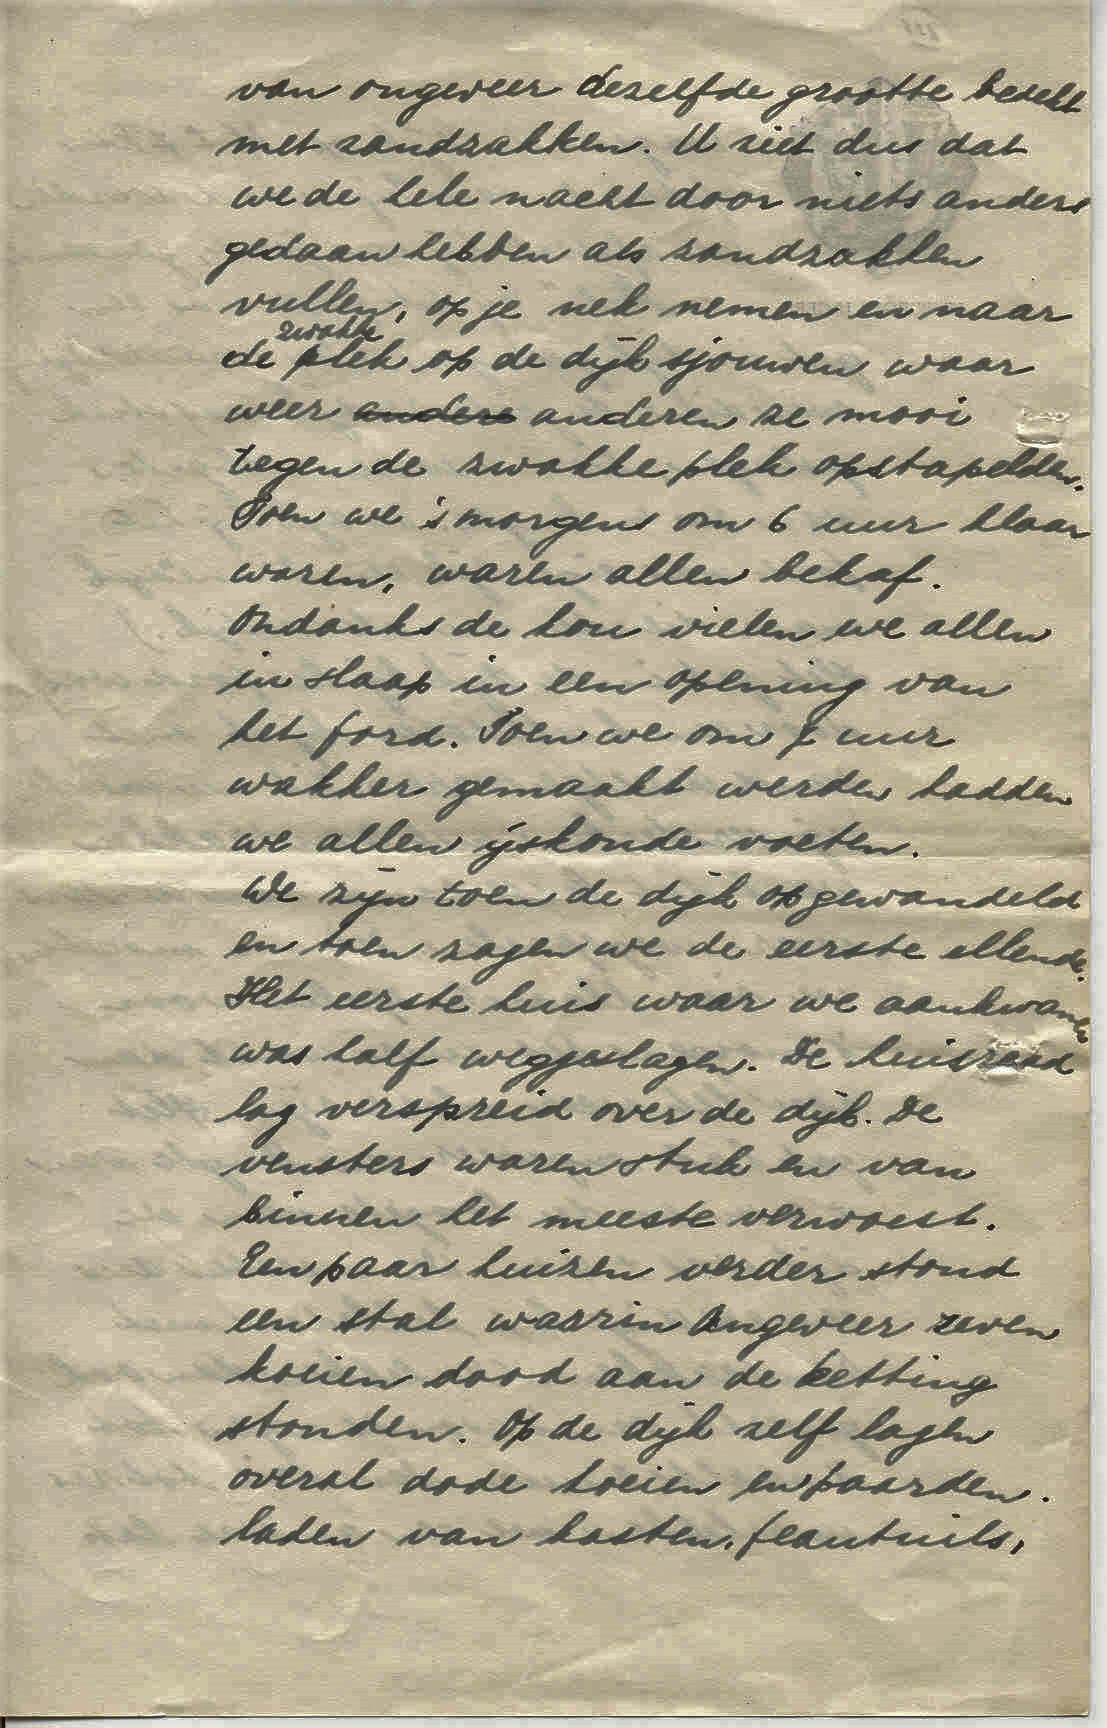 van ongeveer dezelfde grootte bezekt
met zandzakken. U ziet dus dat
we de hele nacht door niets anders
gedaan hebben als zandzakken
vullen, op je nek nemen en naar
de zwakke plek op de dijk sjouwen waar
weer andere anderen ze mooi
tegen de zwakke plek opstapelden.
Toen we 's morgens om 6 uur klaar
waren, waren allen bekaf.
Ondanks de kou vielen we allen
in slaap in een opening van
het ford. Toen we om uur
wakker gemaakt werden hadden
we allen ijskonde voeten.
We zijn toen de dijk opgewandeld
en toen zagen we de eerste ellende.
Het eerste huis waar we aankwamen
was half weggeslagen. De huisraad
lag verspreid over de dijk. De
vensters waren stuk en van
binnen het meeste verwoest.
Een paar huizen verder stond
een stal waarin ongeveer zeven
koeien dood aan de ketting
stonden. Op de dijk zelf lagen
overal dode koeien en paarden.
laden van kasten, feautuils,